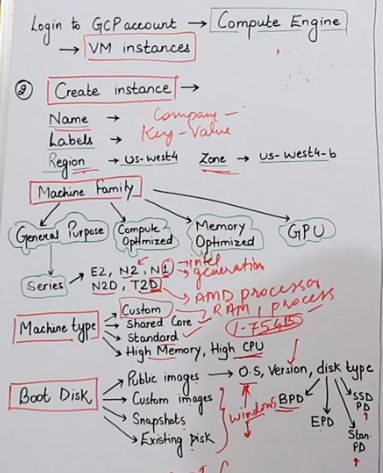 Login to GCP account → Compute Engine
→ VM instances
② Create instance →
Name → Company -
Labels → Key-Value
Region → us-west4 Zone → us-west4-b
Machine Family
General Purpose Compute Optimized Memory Optimized GPU
Series → E2, N2, N1 → intel generation
N2D, T2D → AMD processor
Machine type → Custom → RAM, process
→ Shared Core
→ Standard →
→ High Memory, High CPU
Boot Disk → Public images → O.S, Version, disk type
→ Custom images
→ Snapshots
→ Existing disk
windows
BPD EPD Stan. PD SSD PD